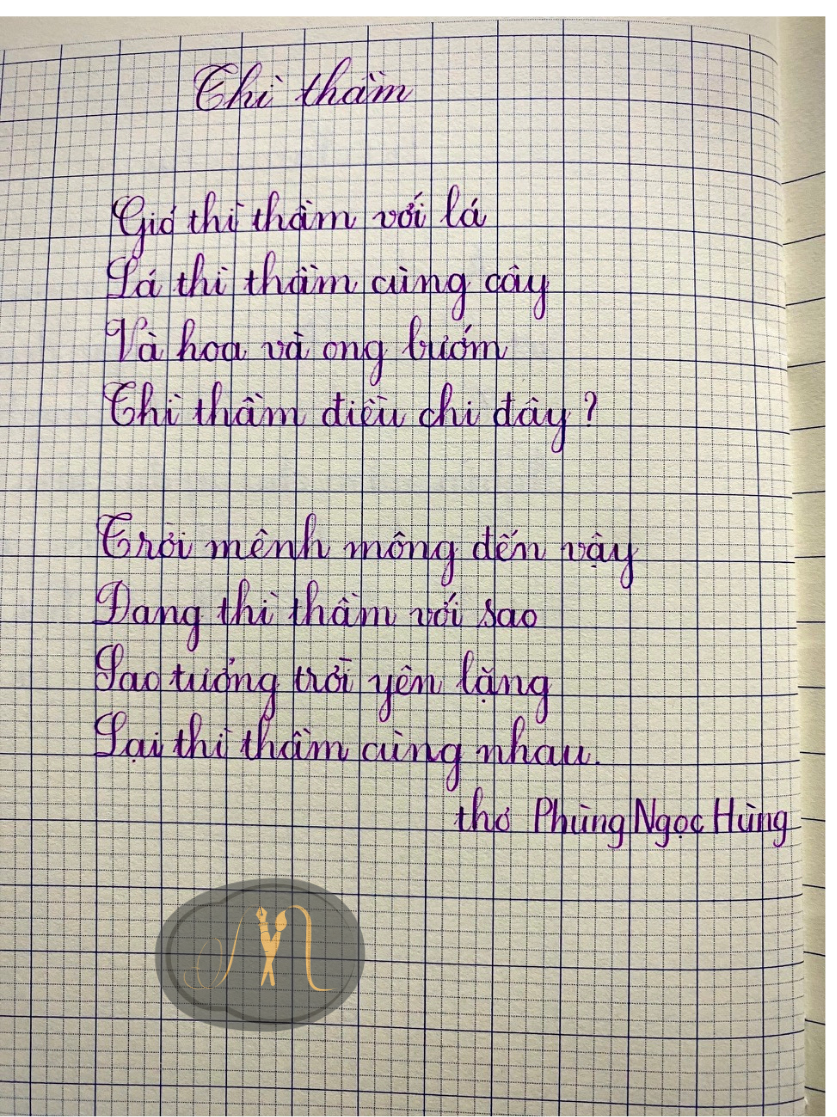 Thì thầm
Gió thì thầm với lá
Lá thì thầm cùng cây
Và hoa và ong bướm
Thì thầm điều chi đây?
Trời mênh mông đến vậy
Đang thì thầm với sao
Sao tưởng trời yên lặng
Lại thì thầm cùng nhau.
thơ Phùng Ngọc Hùng